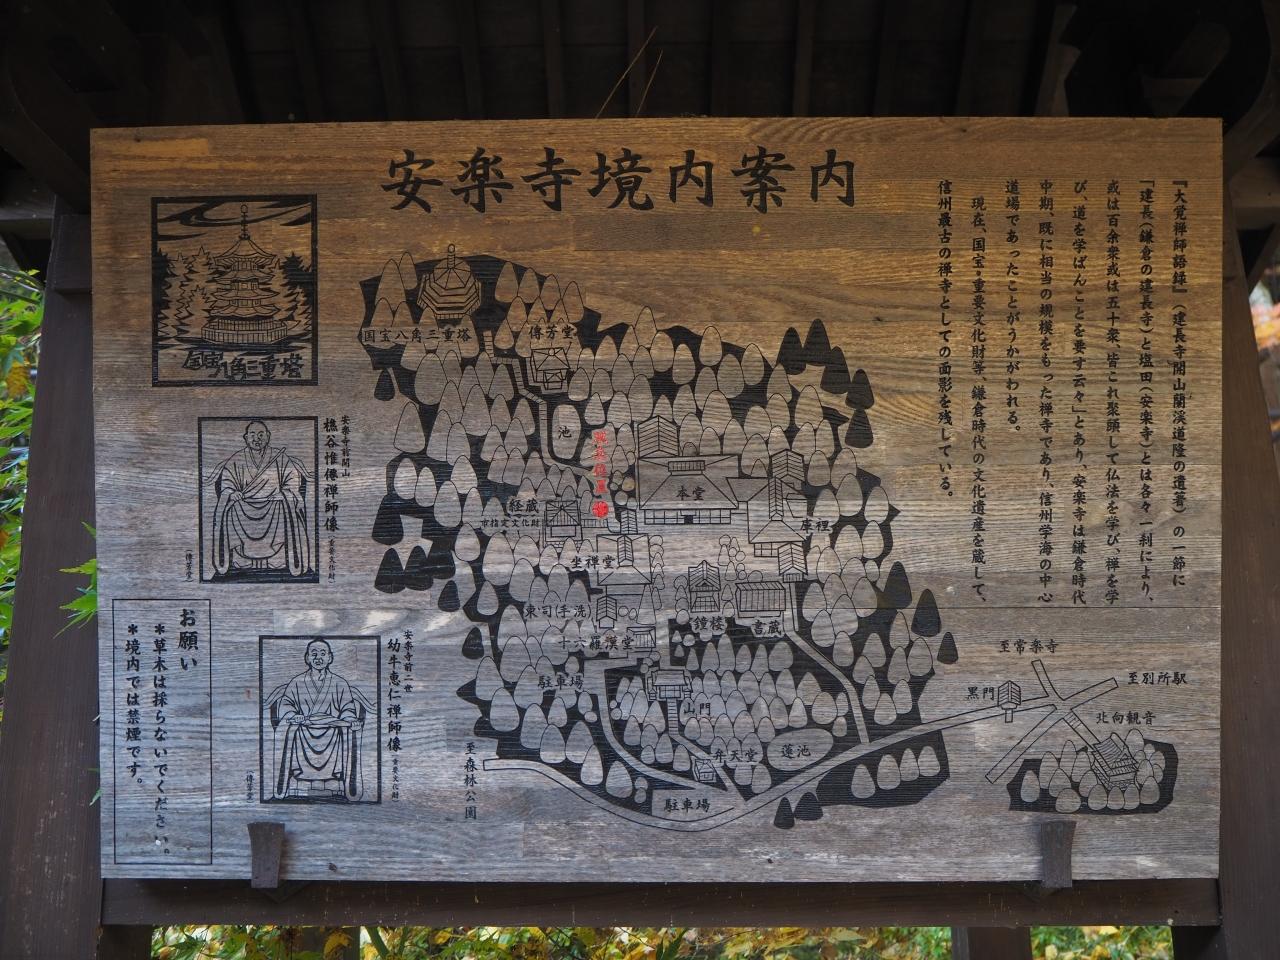 安楽寺境内案内
『大覚禅師語録』(建長寺開山蘭渓道隆の遺著)の一節に
「建長(鎌倉の建長寺)と塩田(安楽寺)とは各々一刹により、
或は百余衆或は五十衆、皆これ聚頭して仏法を学び、禅を学
び、道を学ばんことを要す云々」とあり、安楽寺は鎌倉時代
中期、既に相当の規模をもった禅寺であり、信州学海の中心
道場であったことがうかがわれる。
現在、国宝・重要文化財等、鎌倉時代の文化遺産を蔵して、
信州最古の禅寺としての面影を残している。
国宝八角三重塔
安楽寺前開山
樵谷惟僊禅師像
(重要文化財)
(傳芳堂)
安楽寺前二世
幼牛恵仁禅師像
(重要文化財)
(傳芳堂)
お願い
＊草木は採らないでください。
＊境内では禁煙です。
国宝八角三重塔
傳芳堂
池
経蔵
市指定文化財
本堂
庫裡
坐禅堂
東司(手洗)
十六羅漢堂
鐘楼
書蔵
駐車場
山門
弁天堂
蓮池
駐車場
至森林公園
至常楽寺
至別所駅
黒門
北向観音